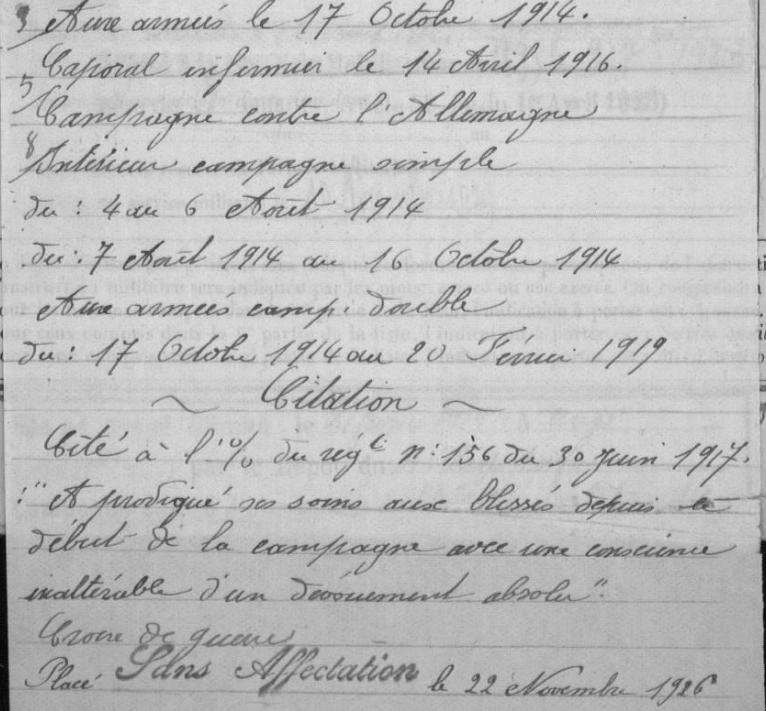 Aux armées le 17 Octobre 1914.
Caporal infirmier le 14 Avril 1916.
Campagne contre l'Allemagne
Intérieur campagne simple
du : 4 au 6 Aout 1914
du : 7 Août 1914 au 16 Octobre 1914
Aux armées camp. double
du : 17 Octobre 1914 au 20 Février 1919
~ Citation ~
Cité à l'o/o du régt n: 156 du 30 Juin 1917.
:" A prodigué ses soins aux blessés depuis le
début de la campagne avec une conscience
inaltérable d'un dévouement absolu".
Croix de guerre
Placé Sans Affectation le 22 Novembre 1926